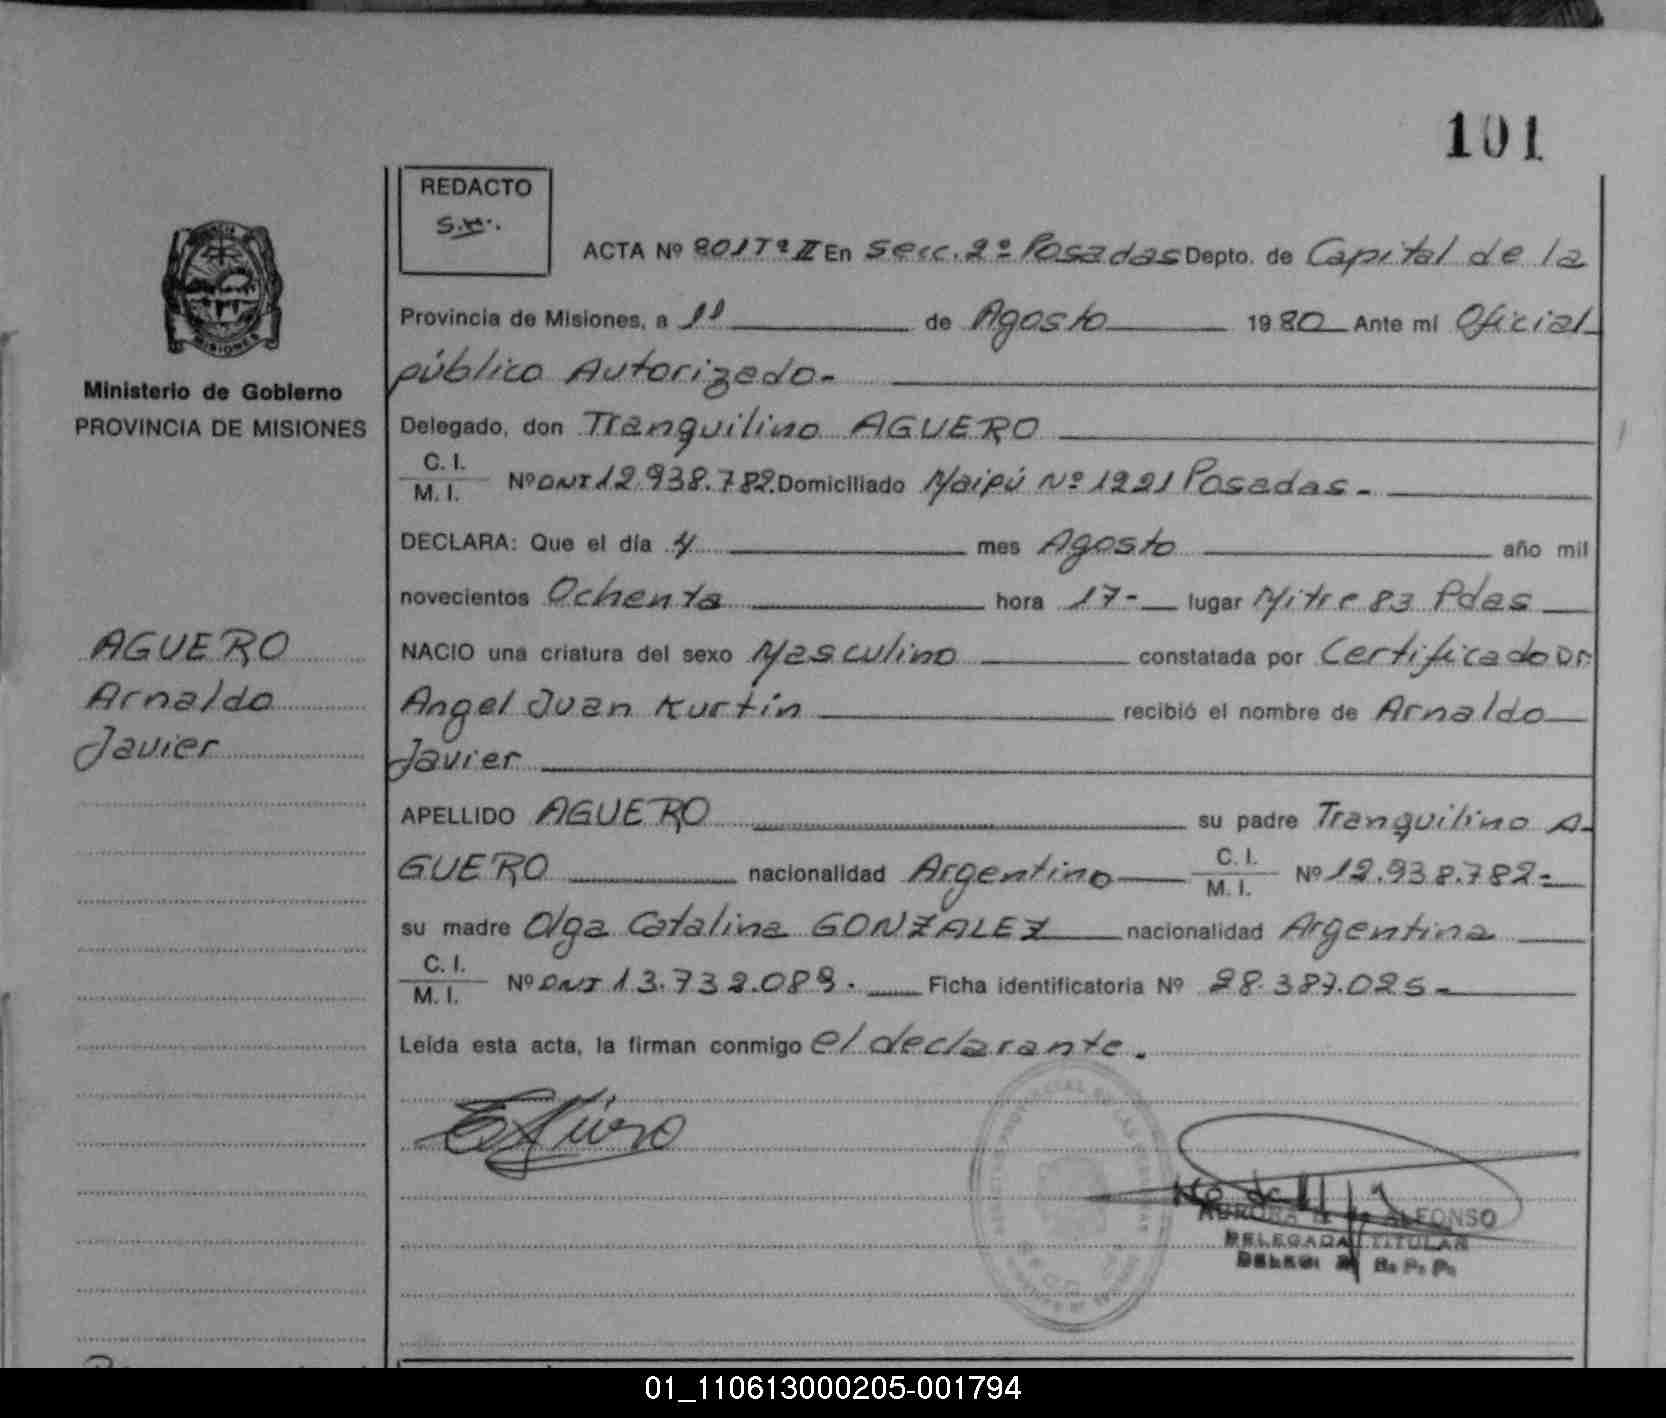 101
REDACTO
S.M.
ACTA Nº 801 Tº II En Secc. 2º Posadas Depto. de Capital de la
Provincia de Misiones, a 11 de Agosto 1980 Ante mi Oficial
público Autorizado-
MISIONES
Ministerio de Gobierno
PROVINCIA DE MISIONES
Delegado, don Tranquilino AGUERO
C. I.
M. I. Nº DNI 12.938.782. Domiciliado Maipú Nº 1221 Posadas-
DECLARA: Que el día 4 mes Agosto año mil
novecientos Ochenta hora 17- lugar Mitre 83 Pdas
AGUERO
Arnaldo
Javier
NACIO una criatura del sexo Masculino constatada por Certificado Dr
Angel Juan Kurtín recibió el nombre de Arnaldo
Javier
APELLIDO AGUERO su padre Tranquilino A-
GUERO nacionalidad Argentino C. I.
M. I. Nº 12.938.782-
su madre Olga Catalina GONZALEZ nacionalidad Argentina
C. I.
M. I. Nº DNI 13.732.089. Ficha identificatoria Nº 28.387.025-
Leída esta acta, la firman conmigo el declarante.
AURORA de ALFONSO
DELEGADA TITULAR
01_110613000205-001794